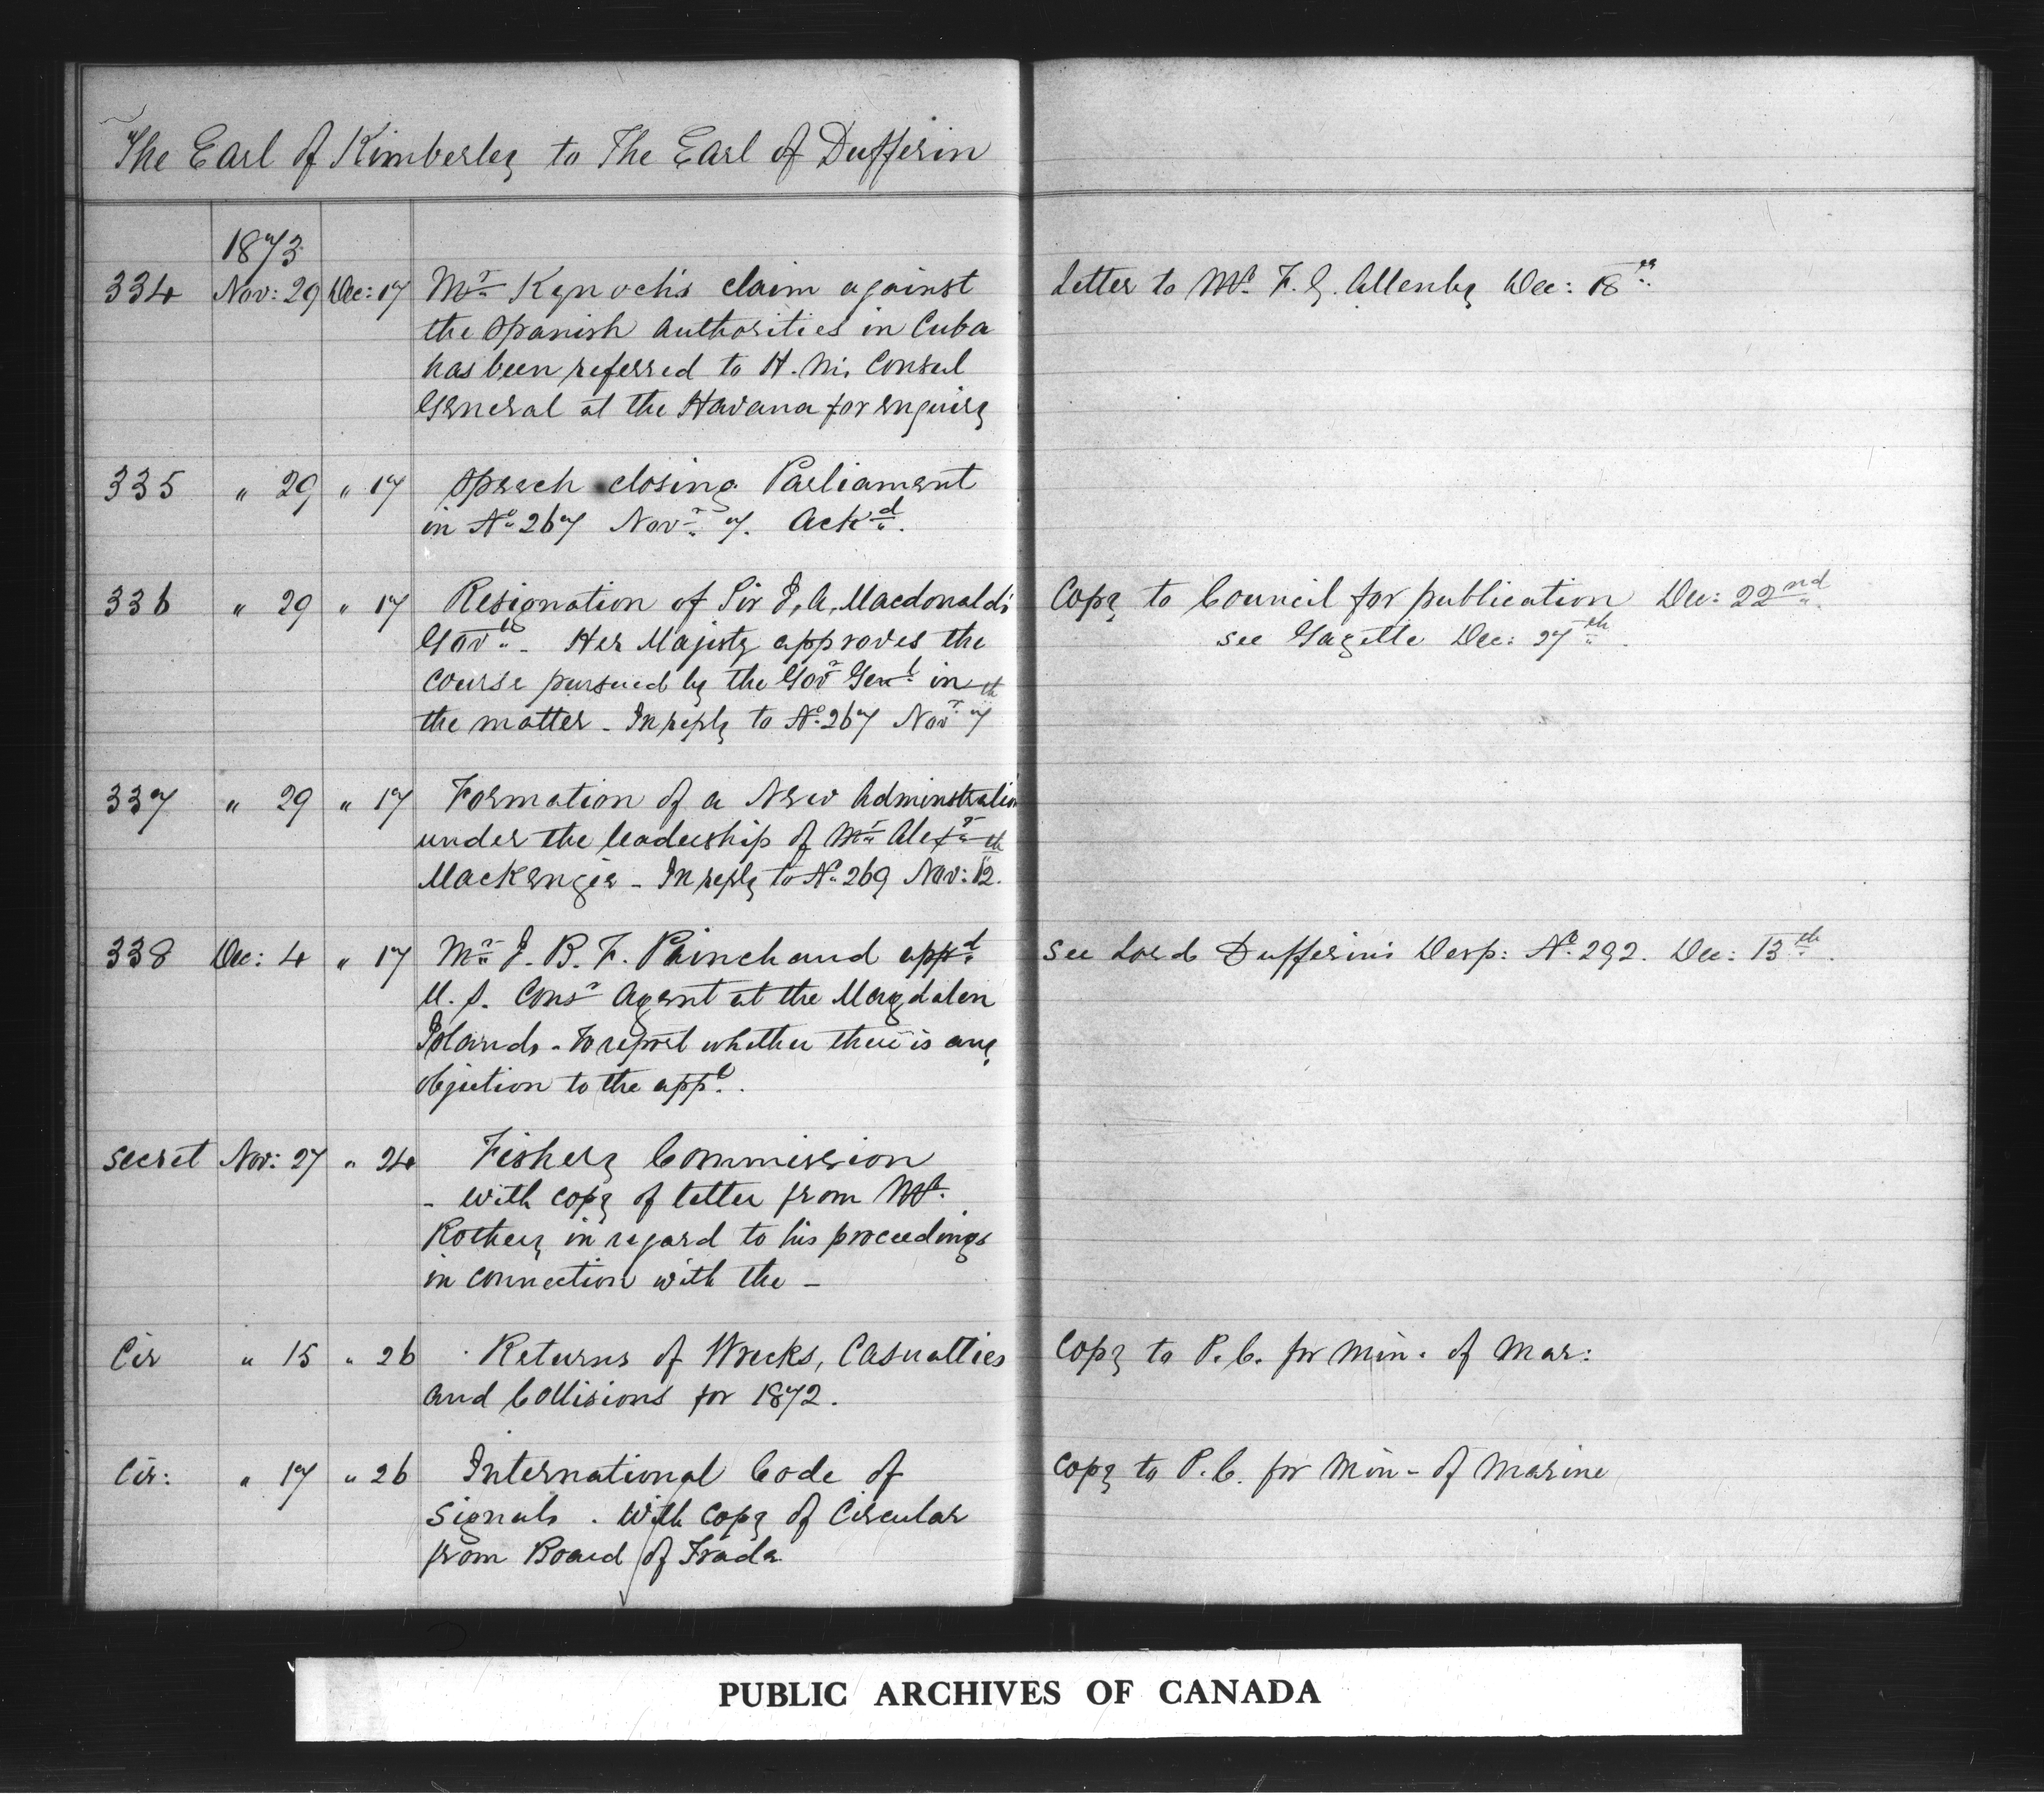 The Earl of Kimberley to The Earl of Dufferin
1873
334 Nov: 29 Dec: 17 Mr Kynoch's claim against Letter to Mr. F. G. Allenby Dec: 18th
the Spanish Authorities in Cuba
has been referred to H. M. Consul
General at the Havana for enquiry
335 " 29 " 17 Speech closing Parliament
in No 267 Novr 7. Ackd.
336 " 29 " 17 Resignation of Sir J. A. Macdonald's Copy to Council for publication Dec: 22nd.
Govt. Her Majesty approves the see Gazette Dec: 27th.
course pursued by the Govr Genl in
the matter - In reply to No 267 Novr 7th
337 " 29 " 17 Formation of a New Adminstration
under the leadership of Mr Alexr
Mackenzie - In reply to No 269 Nov: 12th.
338 Dec: 4 " 17 Mr J. B. F. Painchaud appd See Lord Dufferin's Desp: No 292. Dec: 13th.
U. S. Consr Agent at the Magdalen
Islands - To report whether there is any
objection to the appt.
Secret Nov: 27 " 24 Fishery Commission
- with copy of letter from Mr.
Rothery in regard to his proceedings
in connection with the -
Cir " 15 " 26 Returns of Wrecks, Casualties Copy to P. C. for Min. of Mar:
and Collisions for 1872.
Cir: " 17 " 26 International Code of Copy to P. C. for Min - of Marine
Signals. With copy of Circular
from Board of Trade
PUBLIC ARCHIVES OF CANADA